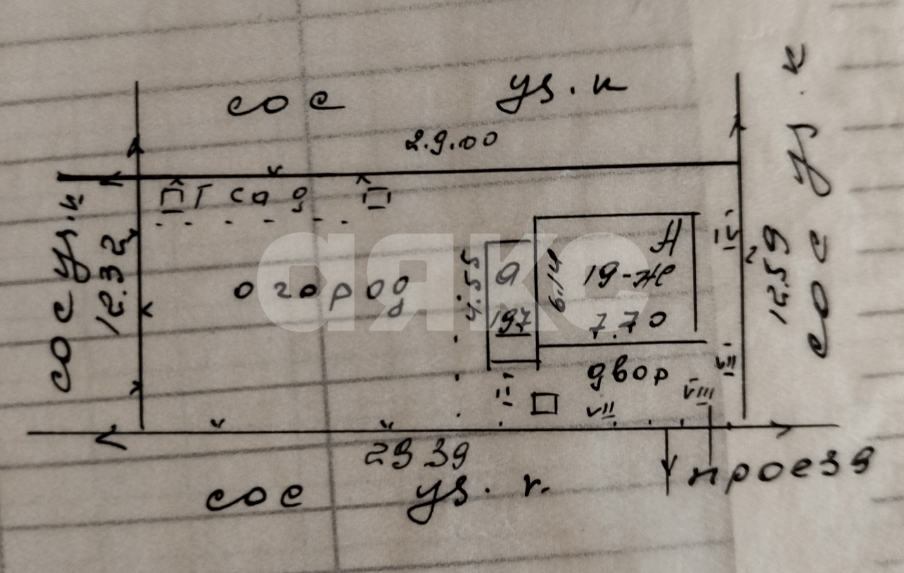 сос уз. к
29.00
сос уз. к
12.32
Г сад
огород
4.55
а
197
6.14
А
19-ж
7.70
IV
12.59
сос уз. к
двор
VII
VIII
VII
II
29 39
проезд
сос уз. к.
аякс